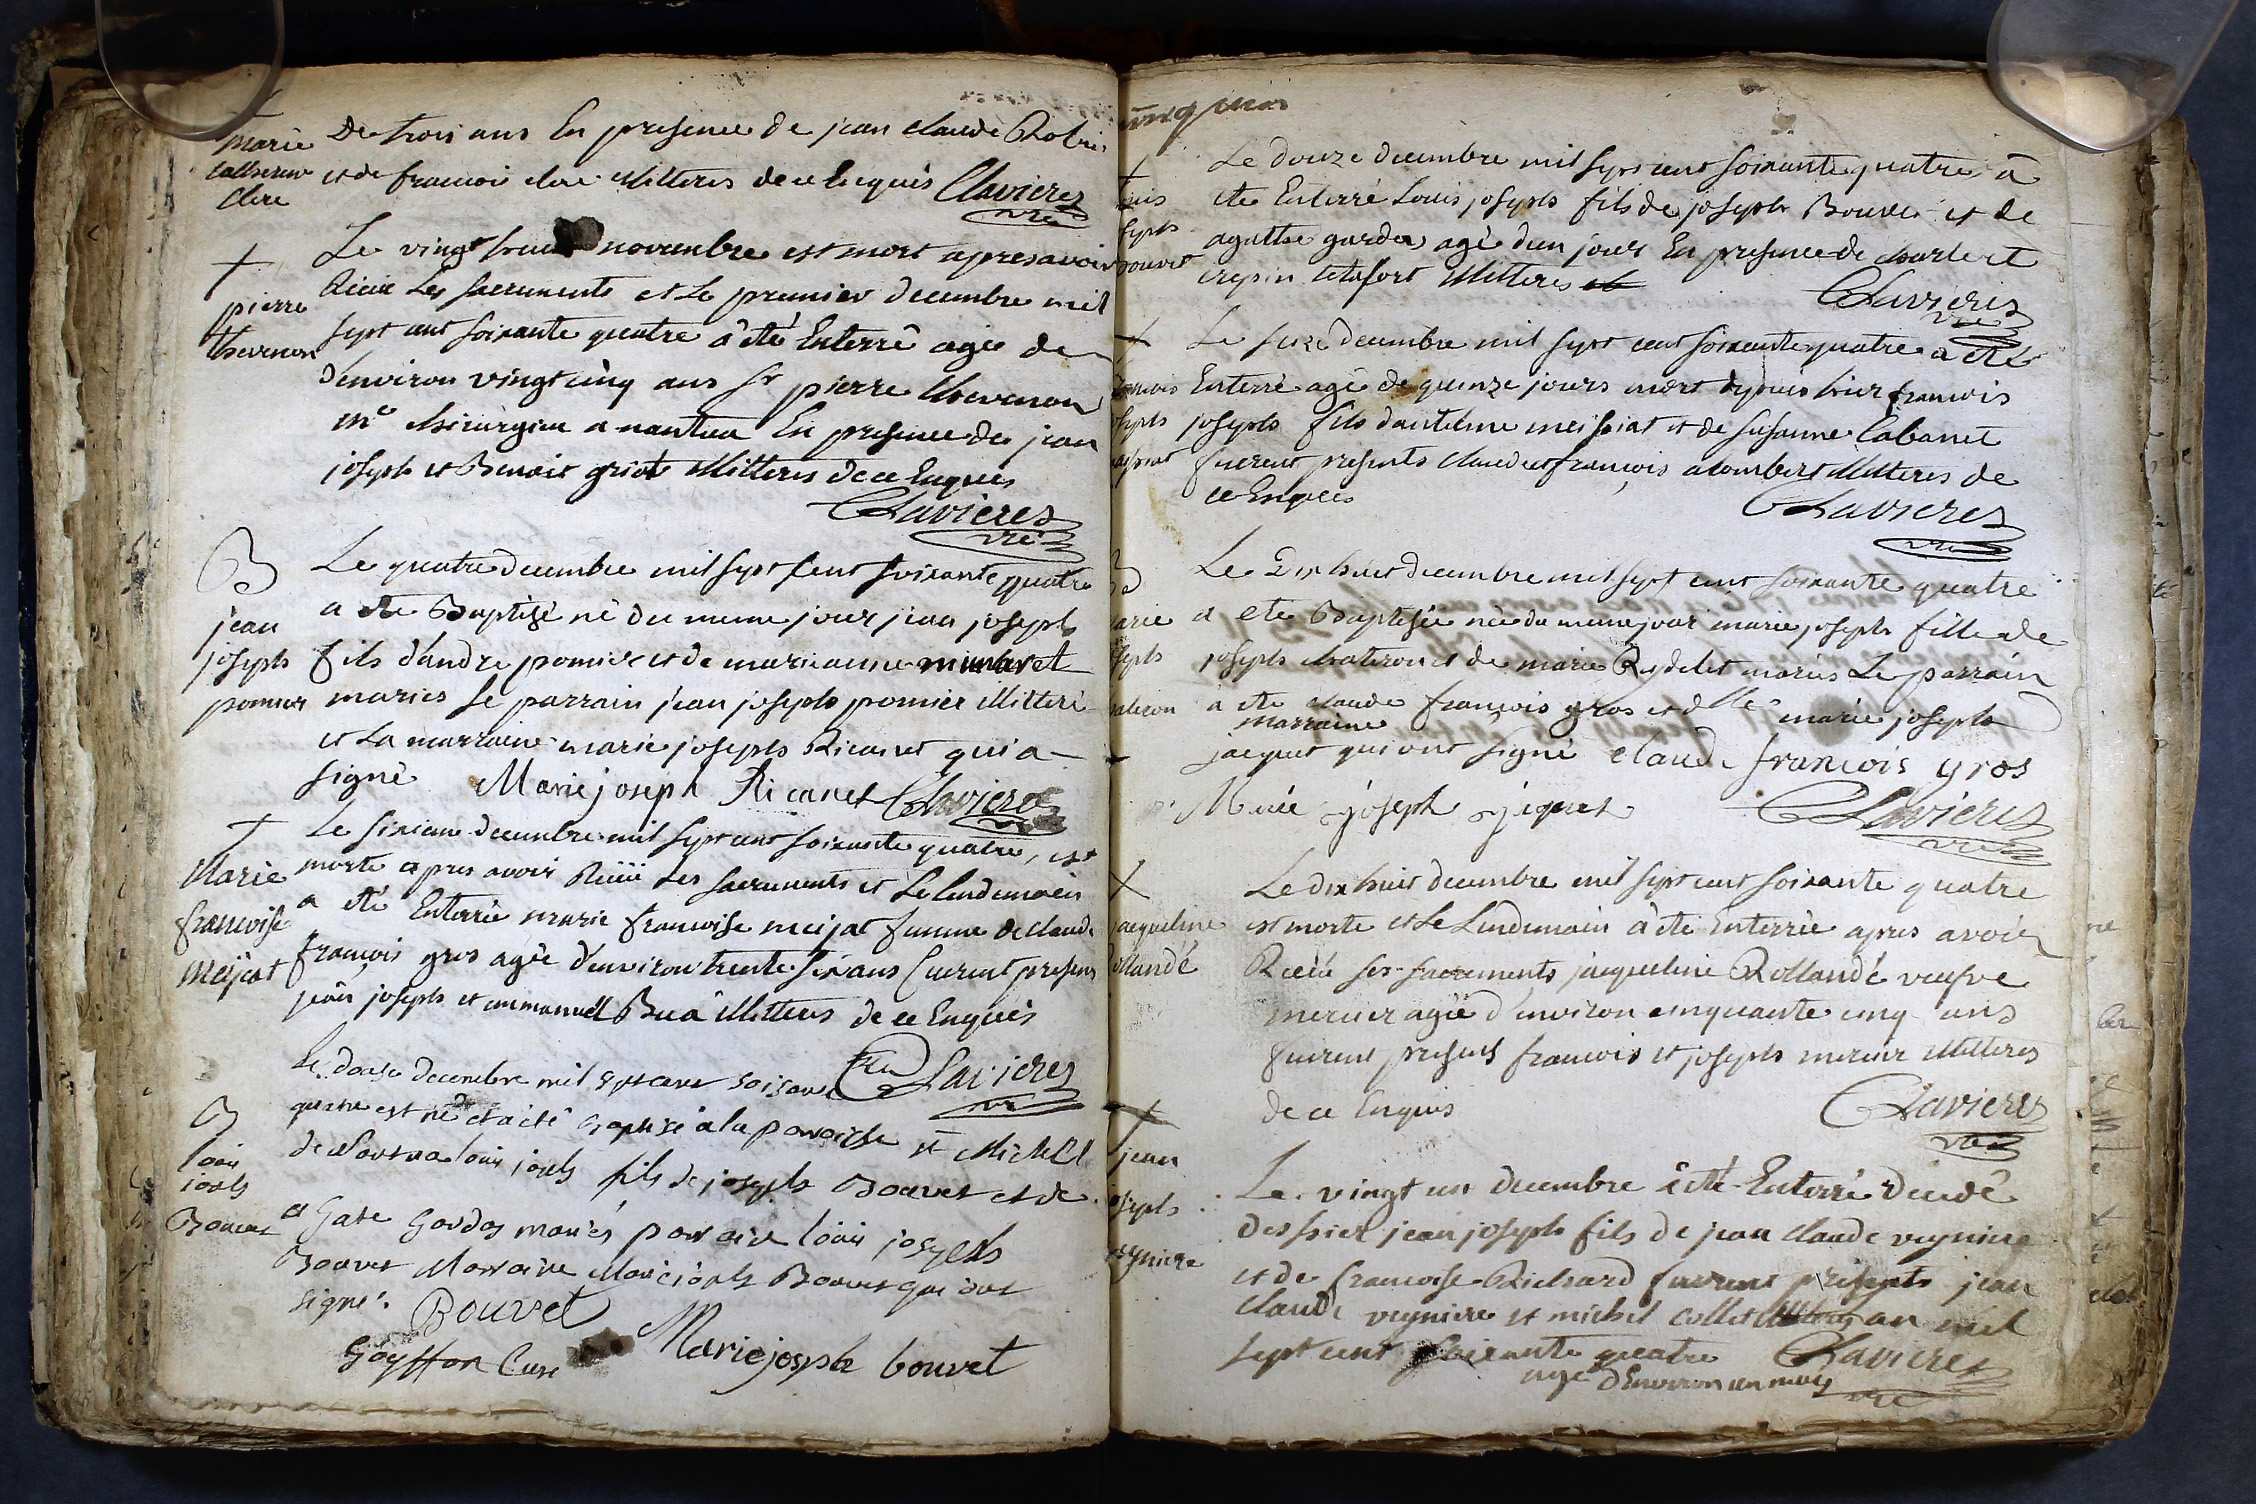 marie
catherine
clere
De trois ans En presence de jean claude Robin
et de francois clere illitteres de ce Enquis Clavieres
vre
+
pierre
thevenon
Le vingt huit novembre est mort apres avoir
Recu Les sacrements et Le premier decembre mil
sept cent soixante quatre à été Enterré agée de
d'environ vingt cinq ans Sr pierre thevenon
Me chirurgien a nantua En presence de jean
joseph et Benoit griot illitteres de ce Enquis
Clavieres
vre
B
jean
joseph
pomier
Le quatre decembre mil sept cent soixante quatre
a été Baptisé né du meme jour jean joseph
fils d'andre pomier et de marianne
maries Le parrain jean joseph pomier illitteré
et La marraine marie joseph Ricanet qui a
signé Marie joseph Ricanet Clavieres
vre
+
Marie
francoise
Meyjat
Le sixieme decembre mil sept cent soixante quatre, est
morte apres avoir Recu Les sacrements et Le lendemain
a été Enterrée marie francoise meijat femme de claude
françois gros agée d'environ trente six ans furent presens
jean joseph et emmanuel illitteres de ce Enquis
Clavieres
vre
B
louis
joseph
Bouvet
Le douse decembre mil sept cent soisante
quatre est né et a été baptisé a la paroisse st Michel
de Nantua louis joseph fils de joseph Bouvet et de
agate mariés parrain louis joseph
Bouvet Marraine Marie joseph Bouvet qui ont
signé. Bouvet
Goyffon Curé Marie joseph bouvet
cinq mars
+
Louis
joseph
Bouvet
Le douze decembre mil sept cent soixante quatre à
été Enterré Louis joseph fils de joseph Bouvet et de
agathe agé d'un jour En presence de charle et
crepin illitteres
Clavieres
vre
+
francois
joseph
Le seize decembre mil sept cent soixante quatre a été
Enterré agé de quinze jours mort depuis hier francois
joseph fils d'antelme messiat et de susanne Cabanet
furent presents claude et françois alombert illitteres de
ce Enquis
Clavieres
vre
B
marie
joseph
chateron
Le Dix huit decembre mil sept cent soixante quatre
a été Baptisée née du meme jour marie joseph fille de
joseph chateron et de marie Rydelet mariés Le parrain
à été claude françois gros et dlle marie joseph
marraine
jacquet qui ont signé claude francois gros
Marie joseph jaquet
Clavieres
vre
+
jacqueline
Rollandé
Le dix huit decembre mil sept cent soixante quatre
est morte et Le Lendemain à été Enterrée apres avoir
Recu ses sacrements jacqueline Rollandé veufve
mercier agée d'environ cinquante cinq ans
furent presens francois et joseph mercier illitteres
de ce Enquis
Clavieres
vre
+
jean
joseph
veyniere
Le vingt un decembre à été Enterré decedé
des hier jean joseph fils de jean claude veyniere
et de francoise Richard furent presents jean
claude veyniere et michel collet an mil
sept cent soixante quatre Clavieres
agé d'Environ un mois
vre